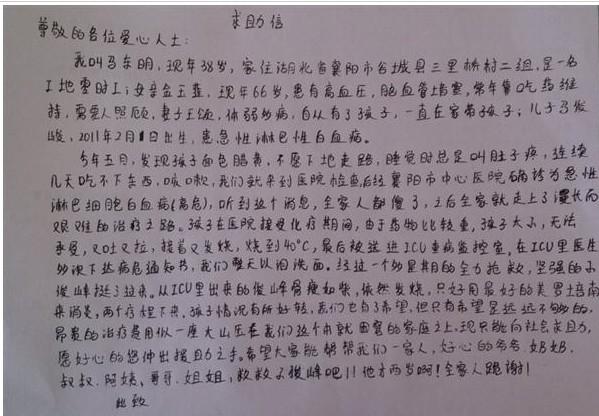 求助信
尊敬的各位爱心人士:
我叫马东明,现年38岁,家住湖北省襄阳市谷城县三里桥村二组,是一名
工地零时工;女音金玉莲,现年66岁,患有高血压,脑血管堵塞,常年靠吃药维
持,需要人照顾,妻子王颂,体弱多病,自从有了孩子,一直在家带孩子;儿子马俊
峻,2011年2月1日出生,患急性淋巴性白血病。
今年五月,发现孩子面色腊黄,不愿下地走路,睡觉时总是叫肚子疼,连续
几天吃不下东西,咳嗽,我们就来到医院检查后经襄阳市中心医院确诊为急性
淋巴细胞白血病(高危),听到这个消息,全家人都傻了,之后全家就走上了漫长而
艰难的治疗之路。孩子在医院接受化疗期间,由于药物比较重,孩子太小,无法
承受,又吐又拉,接着又发烧,烧到40℃,最后被送进ICU重病监控室,在ICU里医生
多次下达病危通知书,我们整天以泪洗面。经过一个多星期的全力抢救,坚强的小
俊峰挺了过来。从ICU里出来的俊峰骨瘦如柴,依然发烧,只好用最好的美罗培南
来消炎,两个疗程下来,孩子情况有所好转,我们也有了希望,但只有希望是远远不够的,
昂贵的治疗费用似一座大山压在我们这个本就困窘的家庭之上,现只能向社会求助,
愿好心的您伸出援助之手。希望大家能够帮我们一家人,好心的爷爷.奶奶.
叔叔.阿姨、哥哥.姐姐,救救小俊峰吧!!他才两岁啊!全家人跪谢!
此致